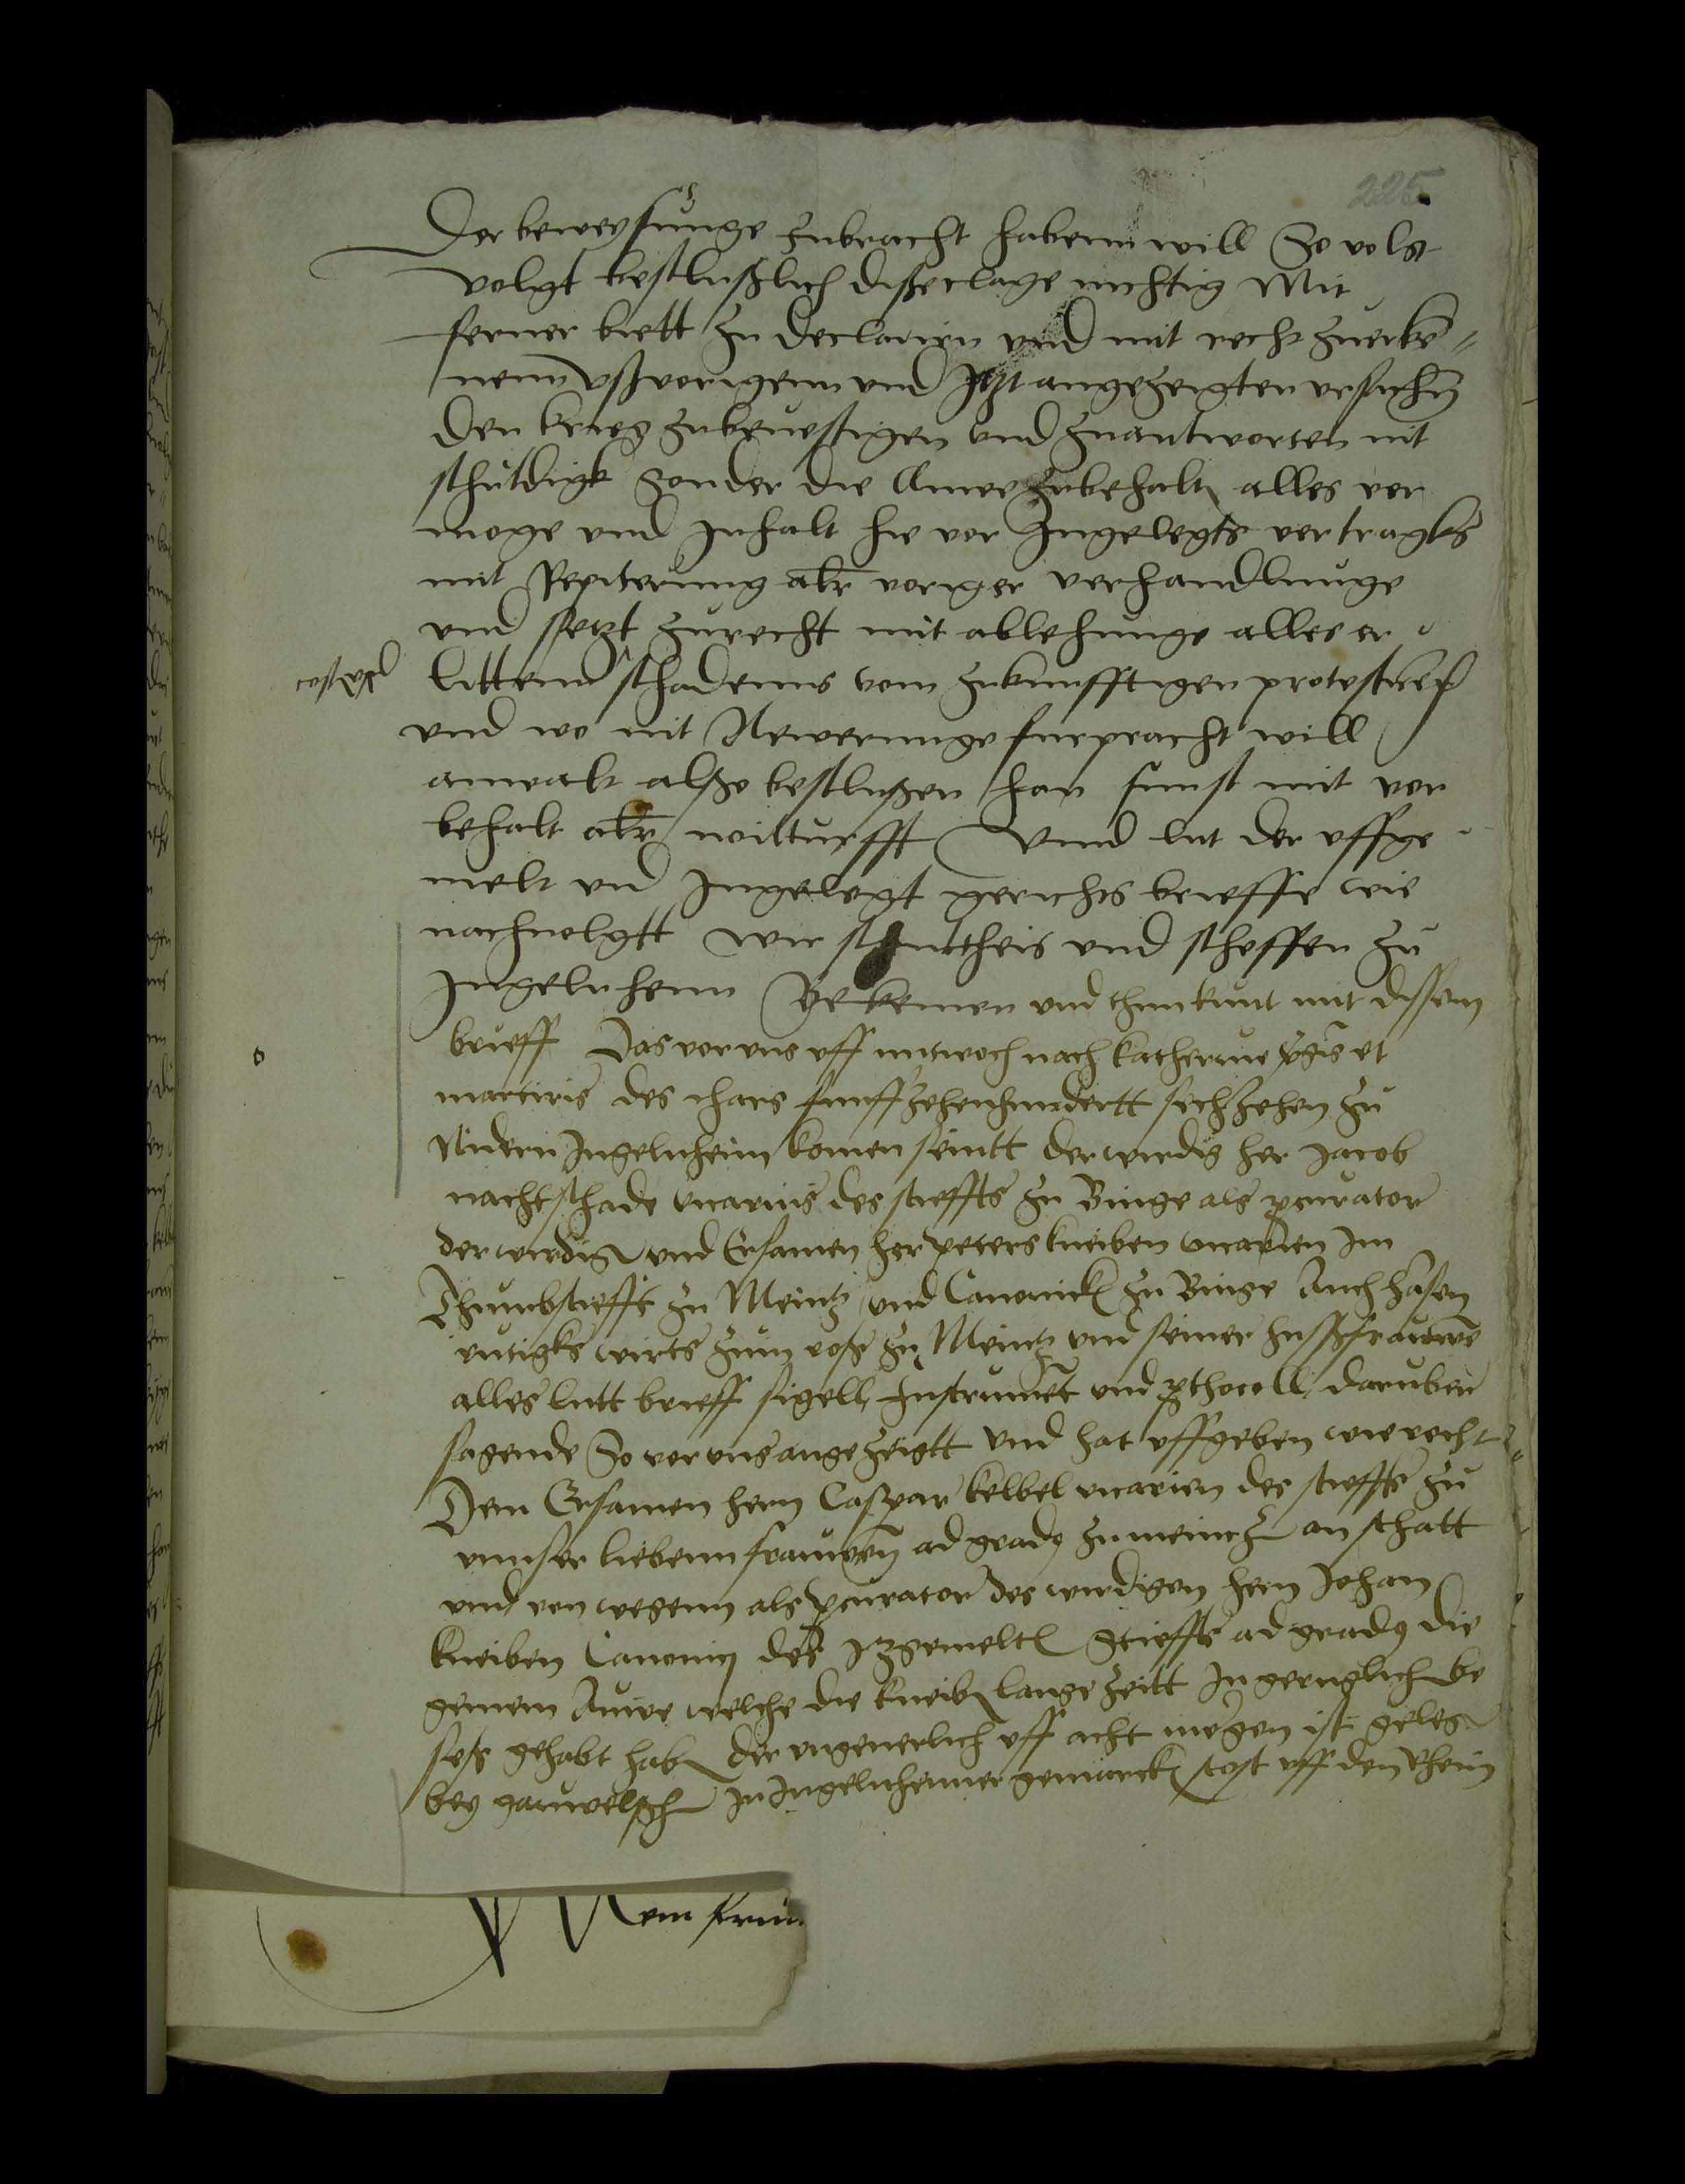 225
Der beweysunge zubracht habenn will So volgt
volgt beschlußlich disse clage nichtig Mit
ferner bett zu declarirn und mit recht zuerken
nenn vß vorigenn und Itzt angezeigten vrsachen
den krieg zubeuestigen und zuantworten nit
schuldigk sonder die Auwe zubehalten alles ver
moge und Inhalt hie vor Ingelegts vertragks
mit Repiterung aller voriger verhandlunge
und setzt zurecht mit ablehnunge alles er
littenn schadenns vom zukunfftigen protestirend
und wo nit Newerunge furpracht will
anwalt alßo beschlußen han sunst mit vor
behalt aller notturfft Vnnd lut der vffge
melt und Ingelegt gerichts brieffe wie
nachuolgtt Wir schultheis und scheffen zu
Ingelnhenn Bekennen und thun kunt mit dissem
brieff Das vor vns vff mitwoch nach katherine virginis et
martiris des jhars funffzehenhundertt sechszehen zu
Nidern Ingelnheim komen seintt der wirdig her Jacob
nachtschade vicarius des stieffts zu Binge als procurator
der wirdigen und Ersamen her peters kneiben vicarien Im
Thumbstiefft zu Meintz und Canonick zu Binge Auch
wirts zum roß zu Meintz und seiner hußfrauwen
alles lutt brieff sigell Instrument und prothocoll daruber
sagende So vor vns angezeigtt Und hat vffgeben wie recht
Dem Ersamen hern Caspar kelbel vicarien des stieffts zu
vnnser liebenn frauwen ad gradus zu meintz an statt
und von wegenn als procurator des wirdigen hern Johan
kneiben Canonici des Itzgemelten Stieffts ad gradus die
gemein Auwe welche die kneiben lange zeitt In geruglich be
seß gehabt haben der vngeuerlich vff acht morgen ist gelegen
bey In Ingelnheimer gemarck stost vff den Rhein